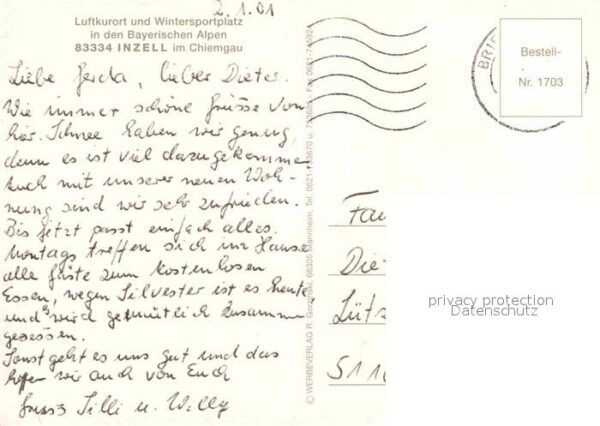 2.1.01
Luftkurort und Wintersportplatz
in den Bayerischen Alpen
83334 INZELL im Chiemgau
Liebe Gerda, lieber Dieter.
Wie immer schöne Grüsse von
hier. Schnee haben wir genug,
denn es ist viel dazugekommen
Auch mit unserer neuen Woh-
nung sind wir sehr zufrieden.
Bis jetzt passt einfach alles.
Montags treffen sich im Hause
alle Gäste zum kostenlosen
Essen, wegen Silvester ist es heute
und es wird gemütlich zusamme
gesessen.
Sonst geht es uns gut und das
hoffen wir auch von Euch
Gruss Silli u. Willy
© WERBEVERLAG R. 68305 Mannheim, Tel. 0621- u. Fax 0621-745924
BRIE
Bestell-
Nr. 1703
Fa
Die
Lüts
5116
privacy protection
Datenschutz